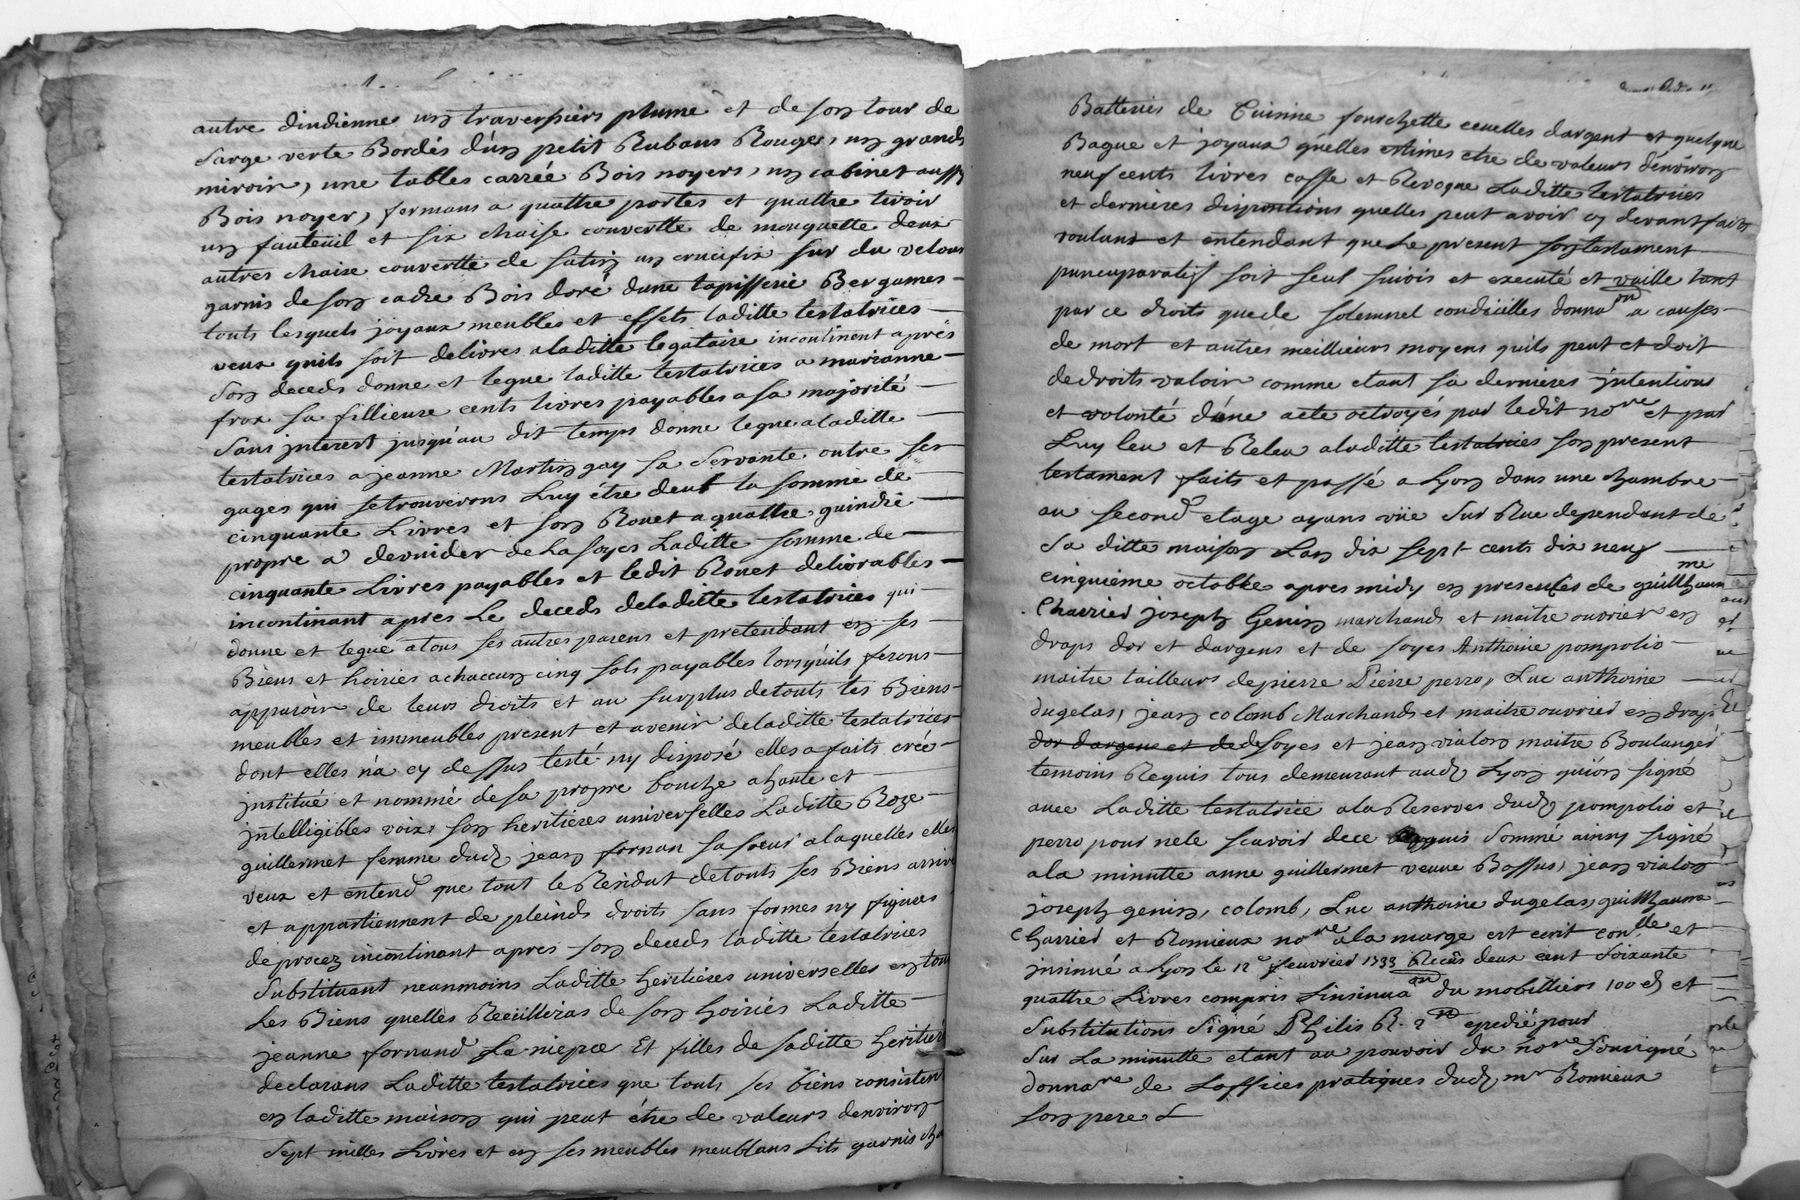 autre dindienne un traverpiers plume et de son tour de
Sarge verte Bordés d'un petit Rubans Rouges, un grands
miroir, une tables carréé Bois noyers, un cabinet aussy
Bois noyer, fermans a quattre portes et quattre tiroir
un fauteuil et six chaise couvertte de mouquette deux
autres chaise couvertte de satin un crucifix sur du velour
garnis de son cadre Bois doré dune tapisserie Bergames
touts lesquels joyaux meubles et effets laditte testatrices
veux quils soit delivres aladitte legataire incontinent après
son deceds donne et legue laditte testatrices a marianne
frox sa fillieuse cents livres payables a sa majorité
sans interert jusqu'au dit temps donne legue aladitte
testatrices a jeanne Martin gay sa servante outre ses
gages qui se trouverons Luy étre deut la somme de
cinquante Livres et son Rouet a quattre guindre
propre a devuider de La soyes Laditte somme de
cinquante Livres payables et ledit Rouet delivrables
incontinant apres Le deceds deladitte testatrices qui
donne et legue atous ses autres parens et pretendant en ses
Biens et hoiries achaccun cinq sols payables lorsquils ferons
apparoir de leurs droits et au surplus de touts les Biens
meubles et immeubles present et avenir deladitte testatrices
dont elles n'a cy dessus testé ny disposé elles a faits créé
institué et nommé de sa propre bouche ahaute et
intelligibles voix son heritieres universelles Laditte Roze
guillermet femme dud jean fornan sa soeur alaquelles elles
veux et entend que tout le Residut de touts ses Biens arrive
et appartiennent de pleinds droits sans formes ny figures
de procez incontinant apres son deceds laditte testatrices
Substituant neanmoins Laditte heritieres universelles en tout
Les Biens quelles Recüilliras de son hoiries Laditte
jeanne fornand La niepce Et filles de saditte heritier
declarans Laditte testatrices que touts ses biens consistent
en laditte maison qui peut étre de valeurs denviron
Sept milles Livres et en ses meubles meublans Lits garnis
Batteries de Cuisine fourchette ceuelles dargent et quelque
Bague et joyaux quelles estimes etre de valeurs d'environ
neuf cents livres casse et Revoque Laditte testatrices
et dernieres dispositions quelles peut avoir cy devant faits
voulans et entendant que Le present son testament
nuncuparatif soit seul suivis et executé et vaille tant
par ce droits que de solemnel condicilles donna on a causes
de mort et autres meilliéurs moyens quils peut et doit
de droits valoir comme etant sa dernieres intentions
et volonté d'une acte octroyés par ledit nore et par
Luy leu et Releu aladitte testatrices son present
testament faits et passé a Lyon dans une chambre
au second etage ayans vüe sur Rue dependant de
sa ditte maison Lan dix sept cents dix neuf
cinquieme octobre apres midy en presences de guillhaume
Charrier joseph Genin marchands et maitre ouvrier en
draps dor et dargens et de soyes Anthoine pompolio
maitre tailleurs depierre Pierre perro, Luc anthoine
dugelas, jean colomb Marchands et maitre ouvrier en draps
dor dargens et de de Soyes et jean vialon maitre Boulanger
temoins Requis tous demeurant aud Lyon qui ön signé
avec Laditte testatrice ala Reserves dud pompolio et
perro pour ne le scavoir dece Requis sommé ainsy signé
ala minutte anne guillermet veuve Bossus, jean vialon
joseph genin, colomb, Luc anthoine dugelas, guillhaume
Charrier et Romieux nore ala marge est ecrit conlle et
insinué a Lyon le 12e feuvrier 1733 Recüs deux cent soixante
quattre Livres compris Linsinuaon du mobilliers 100 et
Substitutions signé Philis R. expedié pour
Sur La minutte etant au pouvoir du nore Sousigné
donnare de Loffices pratiques dud mr Romieux
son pere